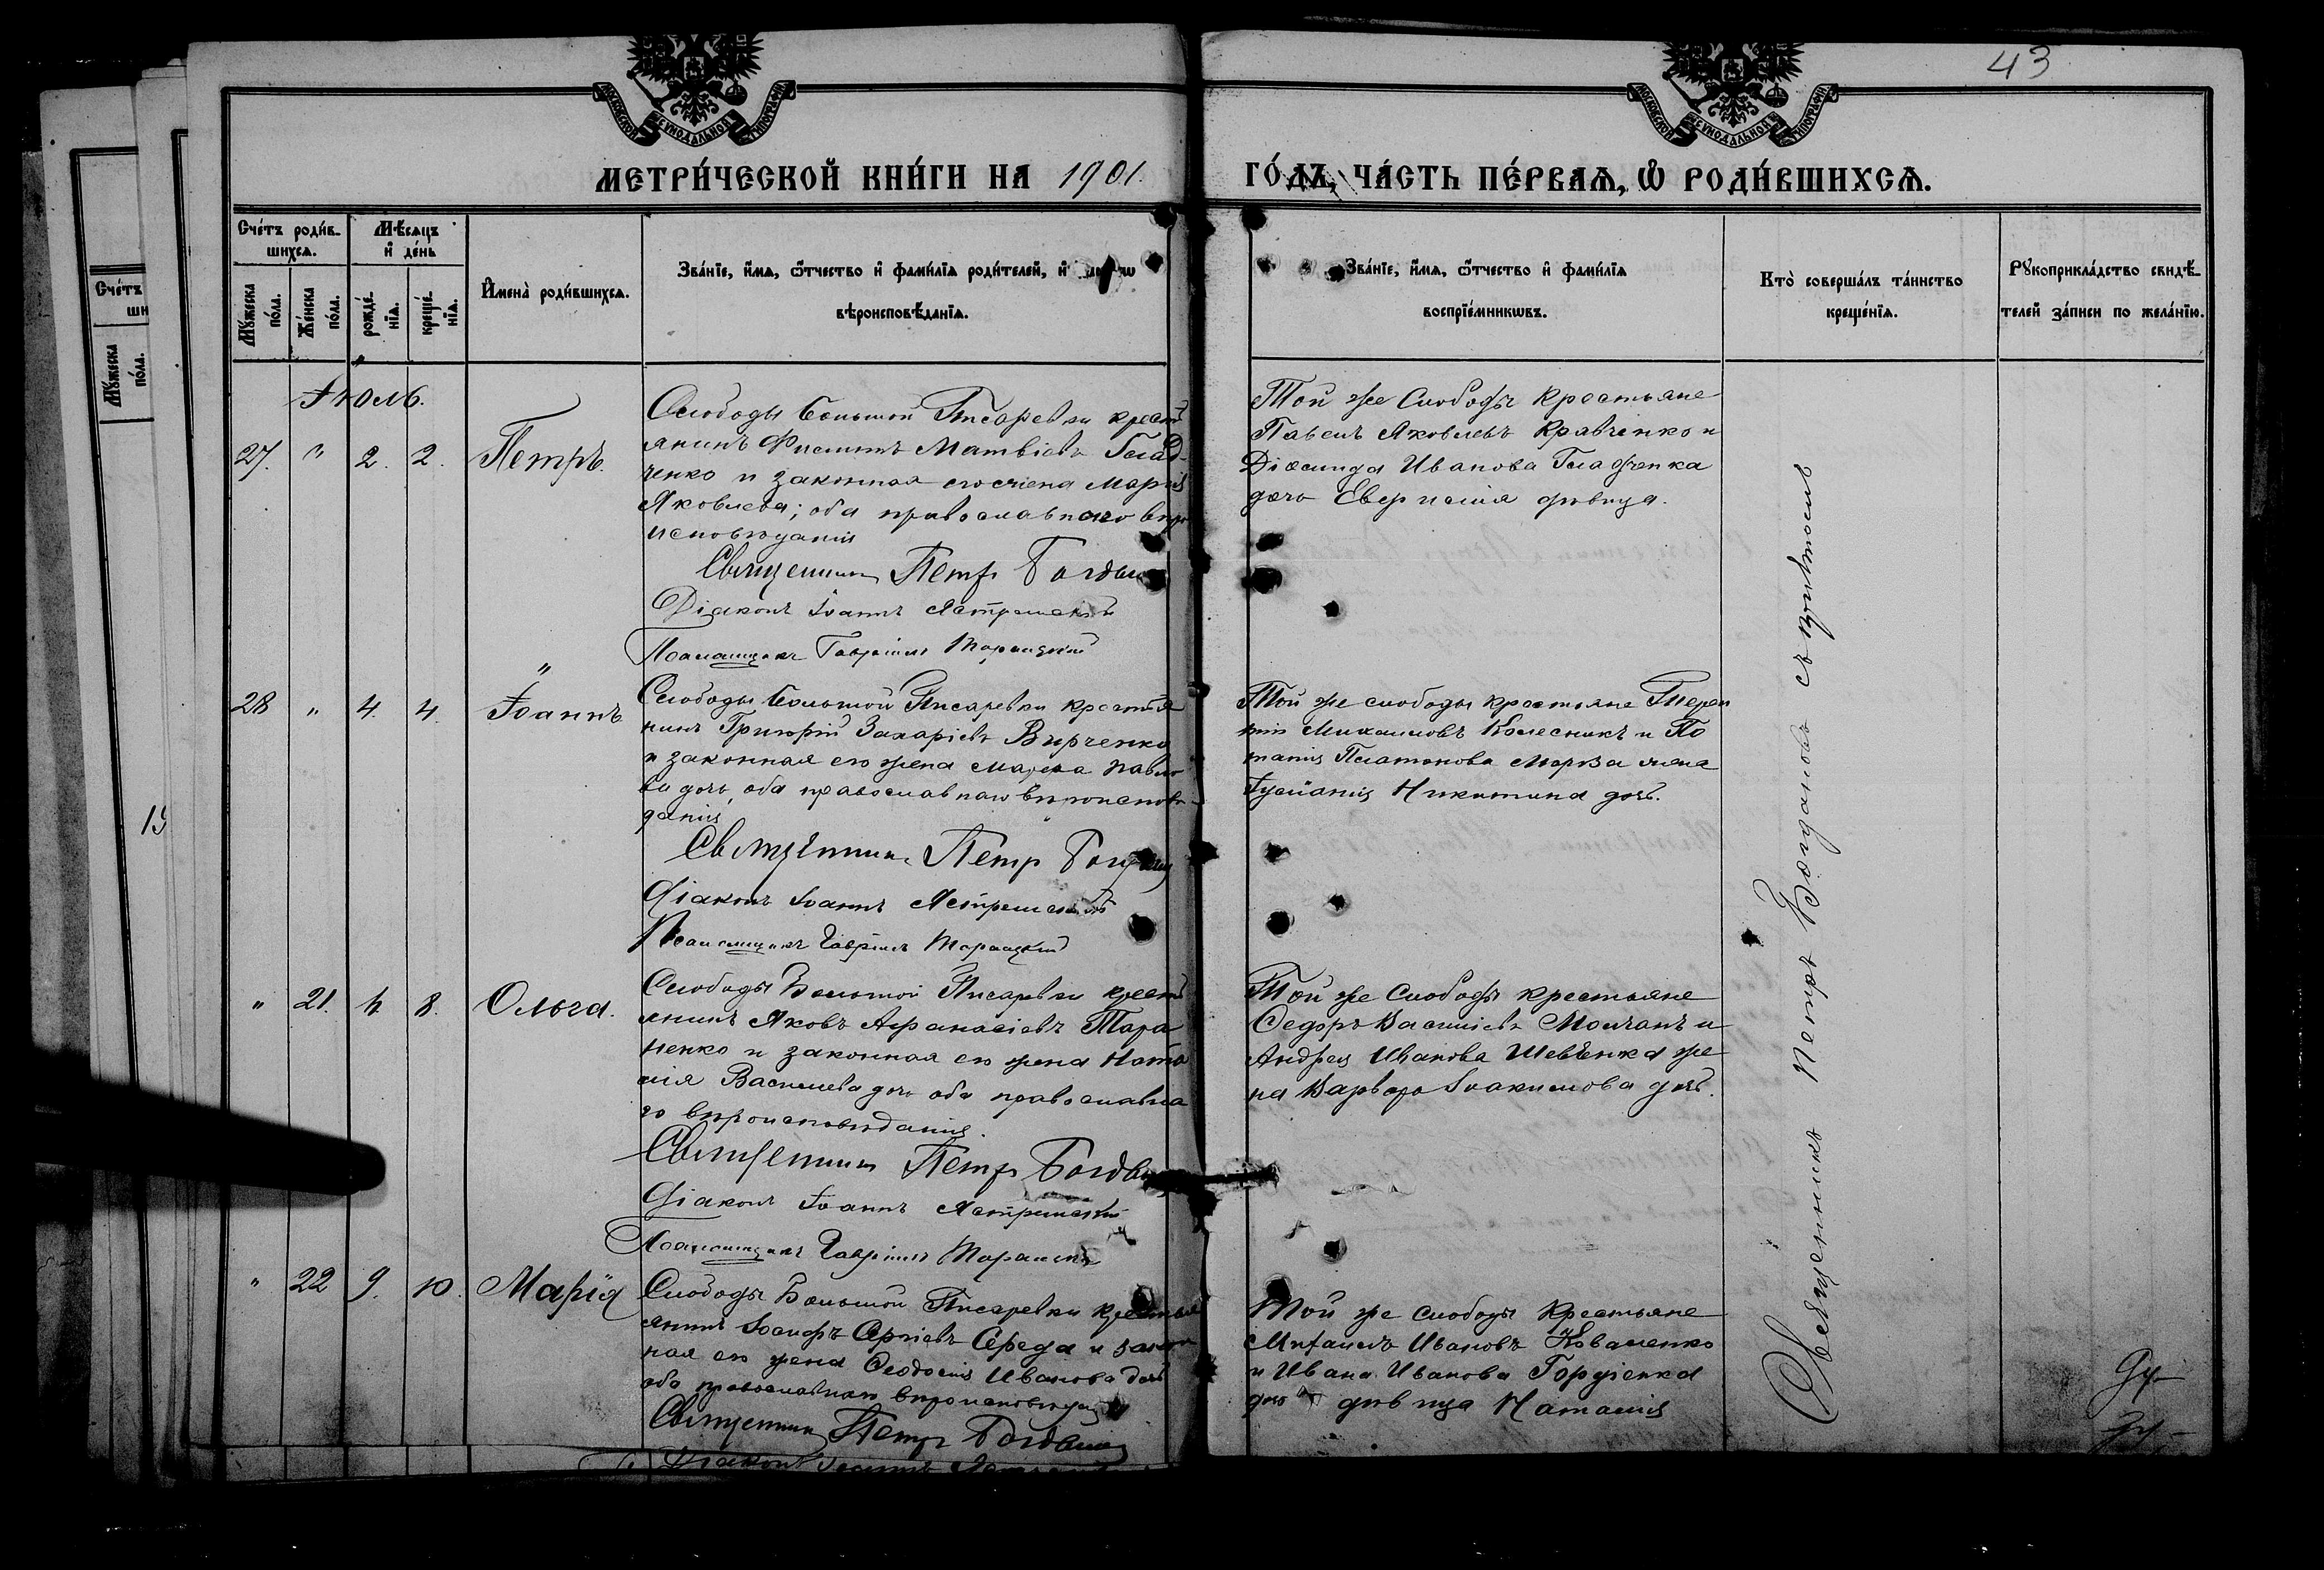 43
МОСКОВСКОЙ СѴНОДАЛЬНОЙ ТИПОГРАФІИ
МОСКОВСКОЙ СѴНОДАЛЬНОЙ ТИПОГРАФІИ
МЕТРИ́ЧЕСКОЙ КНИ́ГИ НА 1901. ГО́ДЪ, ЧА́СТЬ ПЕ́РВАѦ, Ѡ РОДИ́ВШИХСѦ.
Сче́тъ роди́в-
шихсѧ.
Мꙋ́жеска по́ла.
Же́нска по́ла.
Мѣ́сѧцъ
и҆ де́нь
рожде́-
нїѧ.
креще́-
нїѧ.
И҆мена̀ роди́вшихсѧ.
Зва́нїе, и҆́мѧ, ѻ҆́тчество и҆ фами́лїѧ роди́телей, и҆
вѣроисповѣ́данїѧ.
Зва́нїе, и҆́мѧ, ѻ҆́тчество и҆ фами́лїѧ
воспрїе́мникѡвъ.
Кто̀ соверша́лъ та́инство
креще́нїѧ.
Рꙋкоприкла́дство свидѣ́-
телей за́писи по жела́нїю.
Іюль.
27. " 2. 2. Петръ.
Слободы Большой Писаревки крестья
янинъ Филиппъ Матвіевъ Глад-
ченко и законная его жена Марія
Яковлева; оба православнаго вѣро
исповѣданія
Священникъ Петръ Богдан
Діаконъ Іоаннъ Ястремскій
Псаломщикъ Гавріилъ
Той же Слободы крестьяне
Павелъ Яковлевъ Кравченко и
Иванова Гладченка
дочь девица.
28 " 4. 4. Іоаннъ
Слободы Большой Писаревки крестья
нинъ Григорій Захаріевъ Вирченко
и законная его жена Марѳа Павло
ва дочь, оба православнаго вѣроисповѣ-
данія
Священникъ Петръ Богдан
Діаконъ Іоаннъ Ястремскій
Псаломщикъ Гавріилъ
Той же слободы крестьяне Терен
тій Михаиловъ Колесникъ и По
Платонова жена
Никитина дочь.
" 21. 4. 8. Ольга.
Слободы Большой Писаревки крестья
янинъ Яковъ Аѳанасіевъ Тара
ненко и законная его жена Ната
лія Васильева дочь оба православна
го вѣроисповѣданія.
Священникъ Петръ Богдан
Діаконъ Іоаннъ Ястремскій
Псаломщикъ Гавріилъ
Той же Слободы крестьяне
Ѳедоръ Васильевъ Молчанъ и
Андрея Иванова Шевченка же
на Варвара Іоакимова дочь.
" 22 9. 10. Марія
Слободы Большой Писаревки крестья
янинъ Іосифъ Сергіевъ Середа и закон
ная его жена Ѳеодосія Иванова дочь
оба православнаго вѣроисповѣданія
Священникъ Петръ Богдан
Діаконъ Іоаннъ
Той же слободы крестьяне
Михаилъ Ивановъ Коваленко
и Ивана Иванова Гордіенка
дочь девица Наталія
Священникъ Петръ Богдановъ съ причтомъ
Сче́тъ
Мꙋ́жеска по́ла.